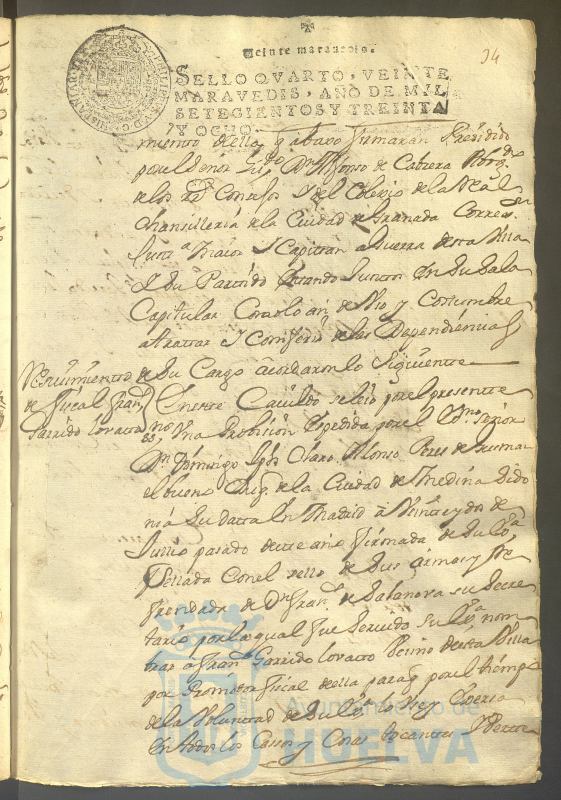 34
Veinte maravedis.
SELLO QVARTO, VEINTE
MARAVEDIS, AÑO DE MIL
SETECIENTOS Y TREINTA
Y OCHO.
miento della q abaxo firmaran Presidido
por el Señor Lizdo Dn Alfonso de Cabrera Abogdo
de los Rs Consejos y del Colegio de la Real
Chansilleria de la Ciudad de Granada Correxor
Justa maior y Capitan a Guerra desta Villa
y su Partido estando Juntos en su Sala
Capitular como lo an de Vso y Costumbre
a tratar y Conferir de las Dependencias
de su Cargo acordaron lo siguiente
Reciuimiento
de Fiscal Franco
Garrido Lovatto
En este Cauildo se leio por el presente
no, Vna Prohision expedida por el Exmo señor
Dn Domingo Claro Alonso Peres de Guzman
el bueno Duq de la Ciudad de Medina Sido
nia su datta en Madrid a Veinte y dos de
Jullio pasado deste año firmada de su exa
sellada con el sello de sus Armas y Re
frendada de Dn Franco de su Secre
tario por la qual fue Servido su exa nom
brar a Franco Garrido Lovatto Vecino desta Villa
por Promotor fiscal della para q por el tiempo
de la Voluntad de su exa lo sea y exersa
en todos los Casos y Cosas tocantes
Ayuntamiento de
HUELVA